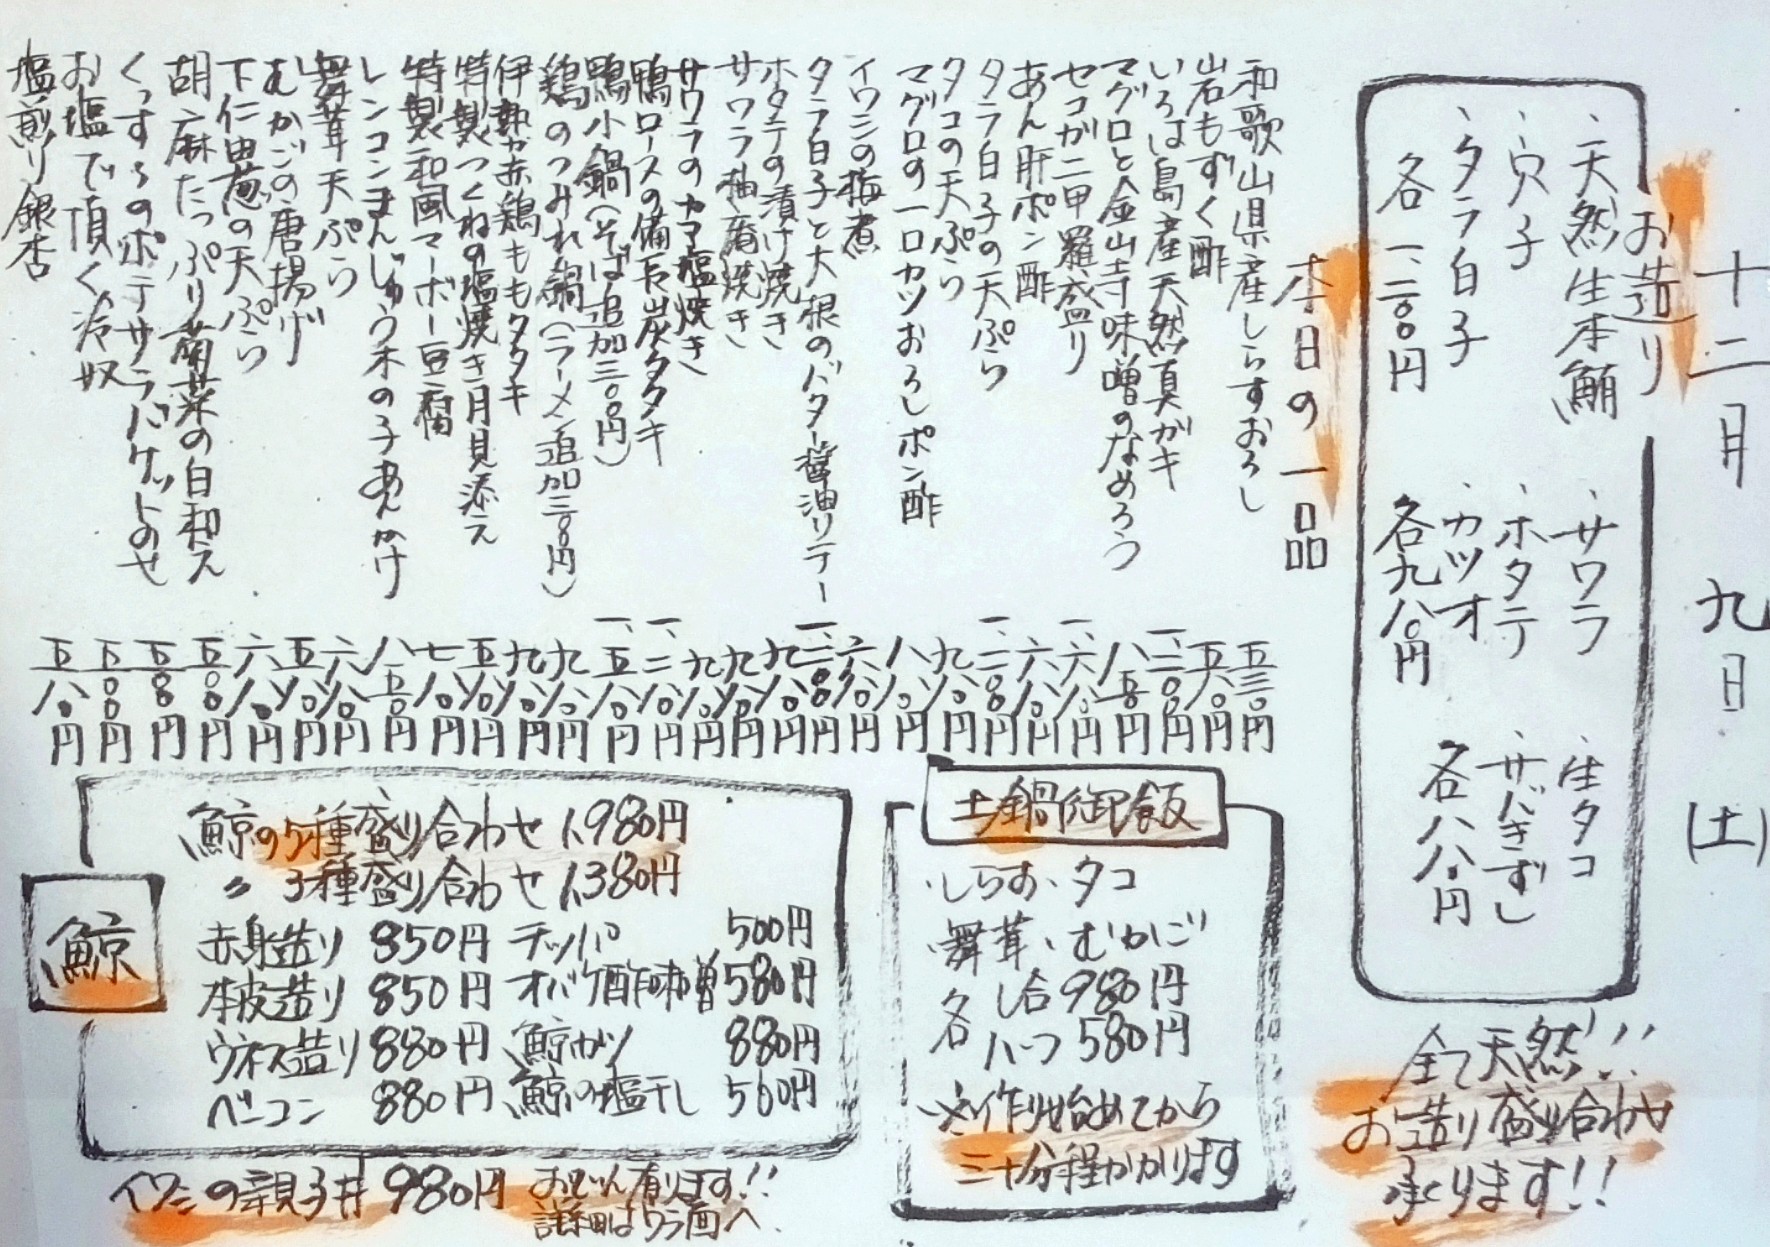 十二月 九日 (土)
お造り
、天然生本鮪
、穴子
、タラ白子
各一、二〇〇円
、サワラ
、ホタテ
、カツオ
各九八〇円
、生タコ
、サバきずし
各八八〇円
全て天然!!
お造り盛り合わせ
承ります!!
本日の一品
和歌山県産しらすおろし 五三〇円
岩もずく酢 五八〇円
いろは島産天然真ガキ 一、二〇〇円
マグロと金山寺味噌のなめろう 八五〇円
セコガニ甲羅盛り 一、六八〇円
あん肝ポン酢 六八〇円
タラ白子の天ぷら 一、二〇〇円
タコの天ぷら 九八〇円
マグロの一口カツおろしポン酢 八八〇円
イワシの梅煮 六八〇円
タラ白子と大根のバター醤油ソテー 一、二〇〇円
ホタテの漬け焼き 九八〇円
サワラ柚庵焼き 九八〇円
サワラのカマ塩焼き 九八〇円
鴨ロースの備長炭タタキ 一、二八〇円
鴨小鍋(そば追加三〇〇円) 一、五八〇円
鶏のつみれ鍋(ラーメン追加三〇〇円) 九八〇円
伊勢赤鶏ももタタキ 九八〇円
特製つくねの塩焼き月見添え 五八〇円
特製和風マーボー豆腐 七八〇円
レンコンまんじゅう木の子あんかけ 八五〇円
舞茸天ぷら 六八〇円
むかごの唐揚げ 五八〇円
下仁田葱の天ぷら 六八〇円
胡麻たっぷり菊菜の白和え 五〇〇円
くつするのポテサラバケットのせ 五八〇円
お塩で頂く冷奴 五〇〇円
塩煎り銀杏 五八〇円
土鍋御飯
、しらす、タコ
、舞茸、むかご
各 一合 980円
各 ハーフ 580円
※作り始めてから
三十分程かかります
鯨
鯨の5種盛り合わせ 1,980円
〃 3種盛り合わせ 1,380円
赤身造り 850円
本皮造り 850円
ウネス造り 880円
ベーコン 880円
テッパ 500円
オバケ酢味噌 580円
鯨カツ 880円
鯨の塩干し 560円
イワシの親子丼 980円
おでん有ります!!
詳細はウラ面へ